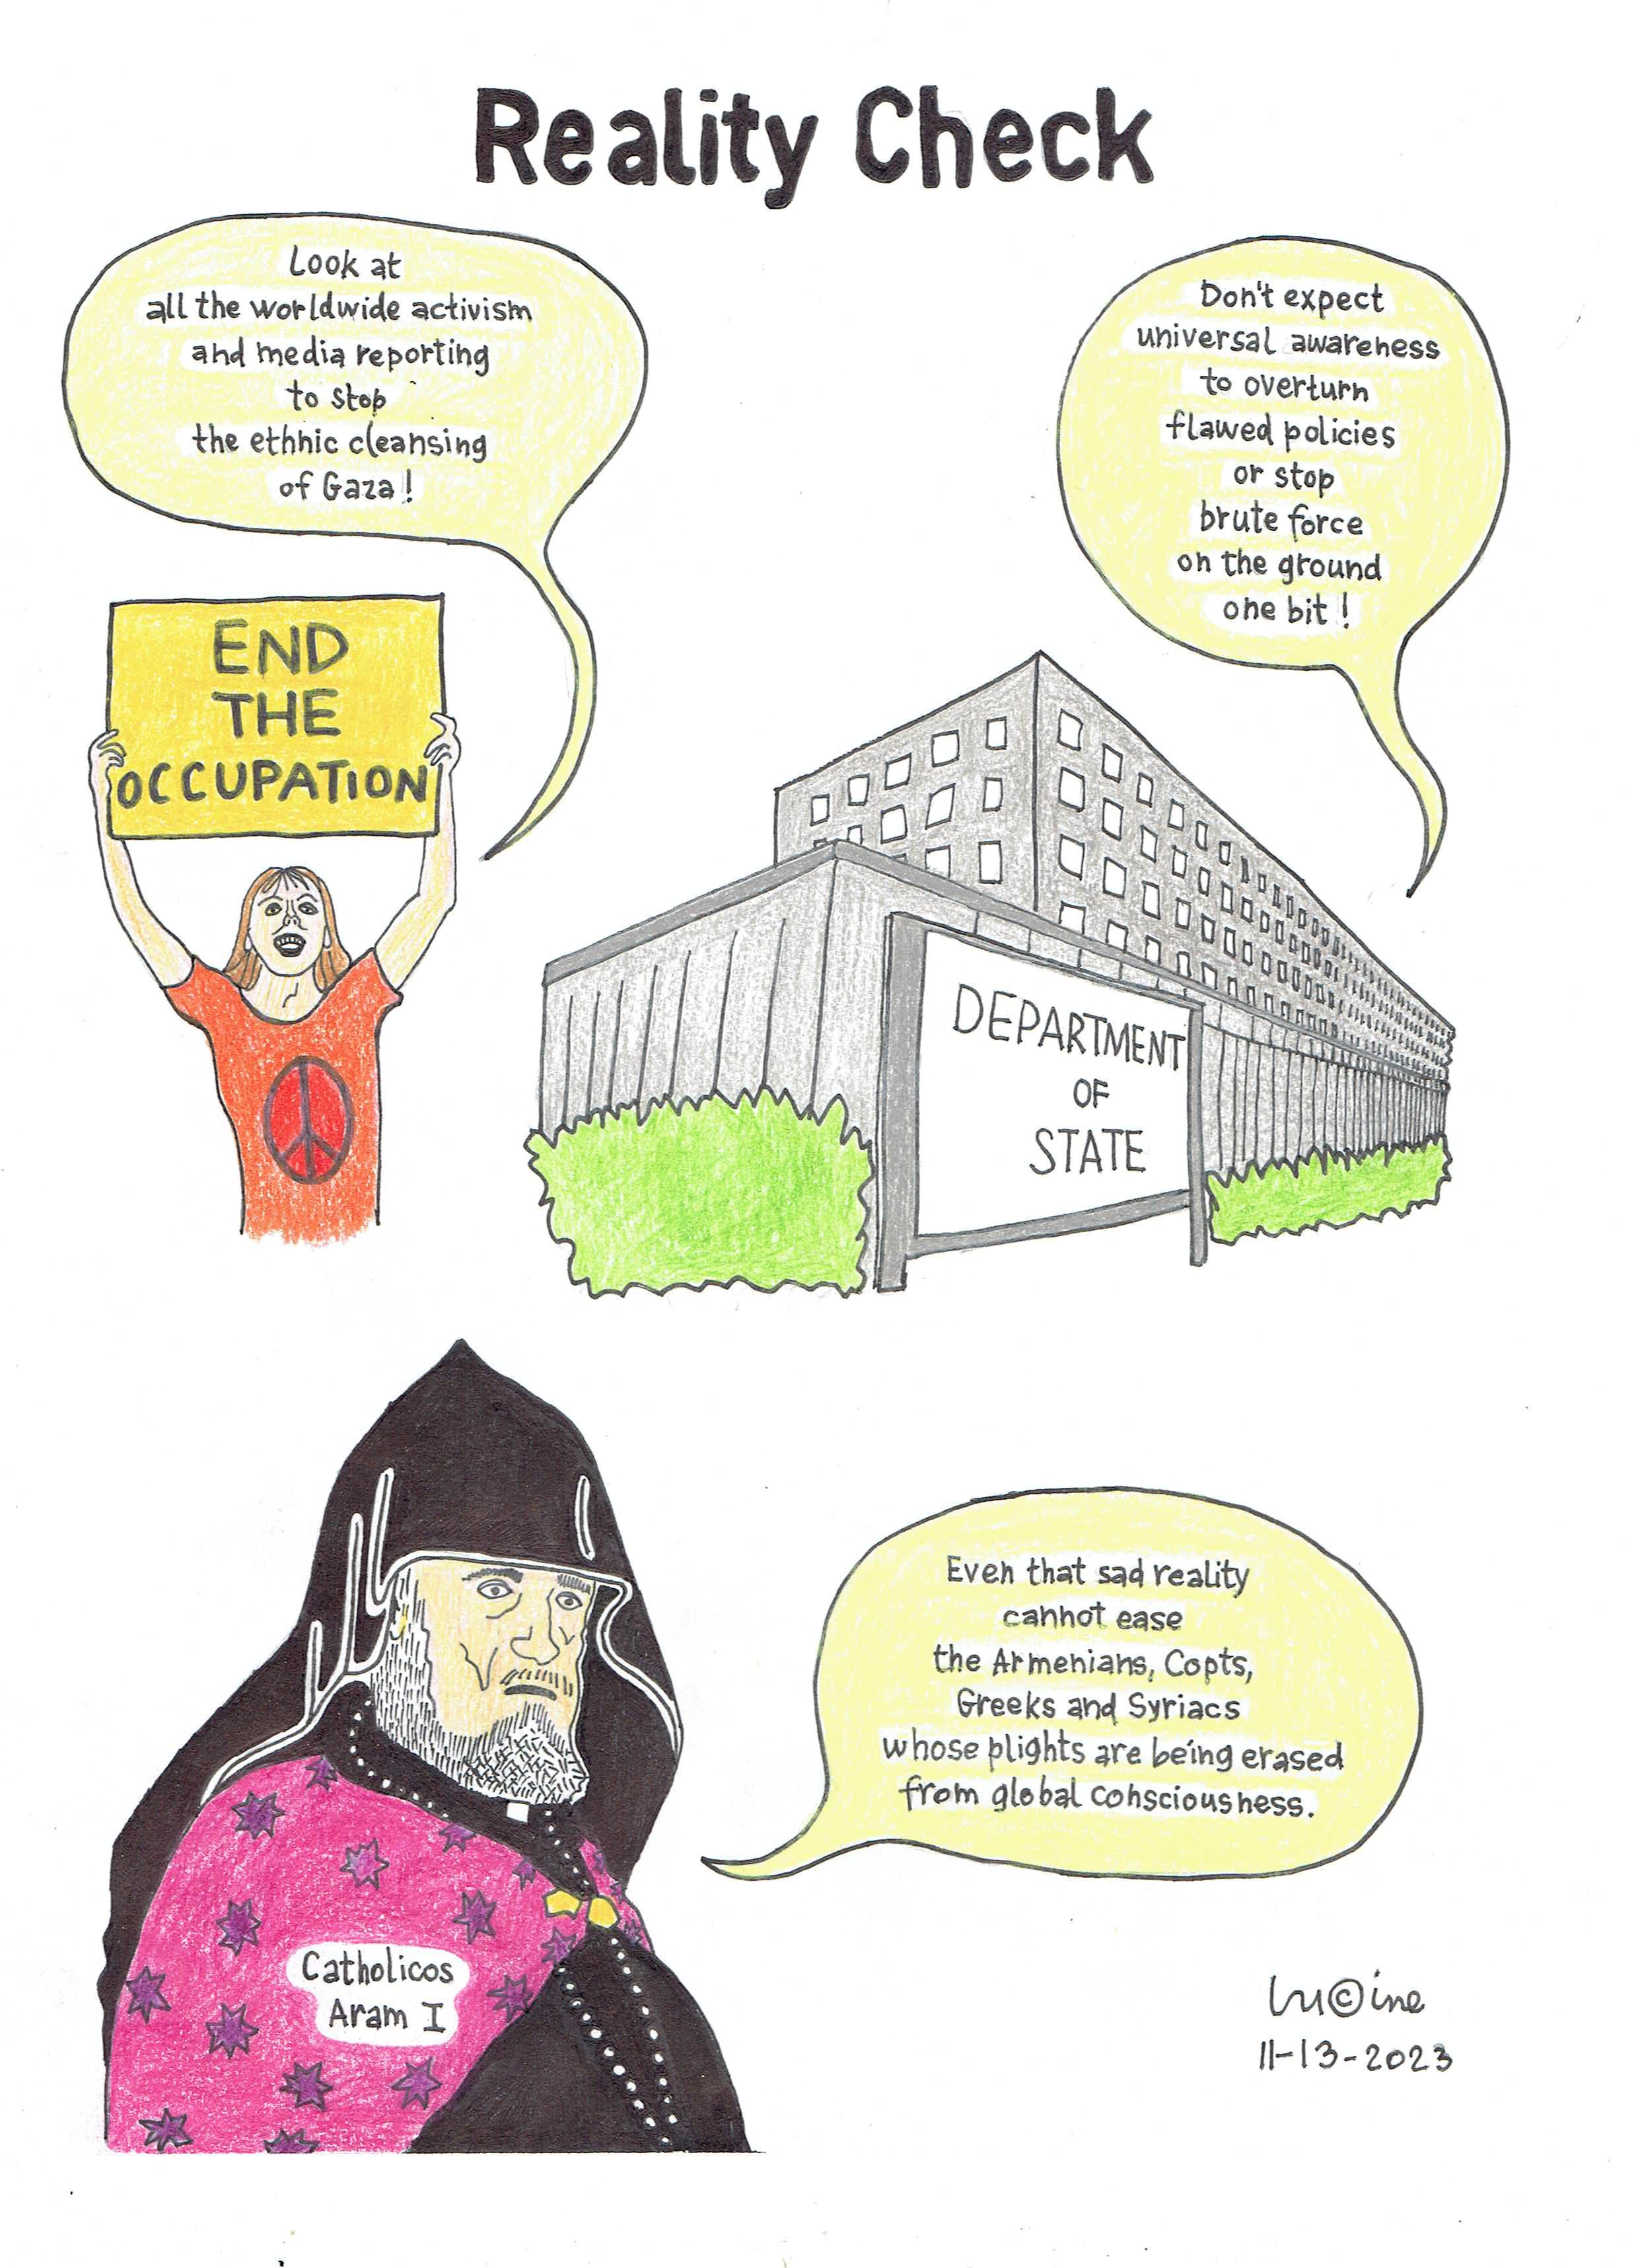 Reality Check
Look at
all the worldwide activism
and media reporting
to stop
the ethnic cleansing
of Gaza!
Don't expect
universal awareness
to overturn
flawed policies
or stop
brute force
on the ground
one bit!
END
THE
OCCUPATION
DEPARTMENT
OF
STATE
Even that sad reality
cannot ease
the Armenians, Copts,
Greeks and Syriacs
whose plights are being erased
from global consciousness.
Catholicos
Aram I
Lu©ine
11-13-2023